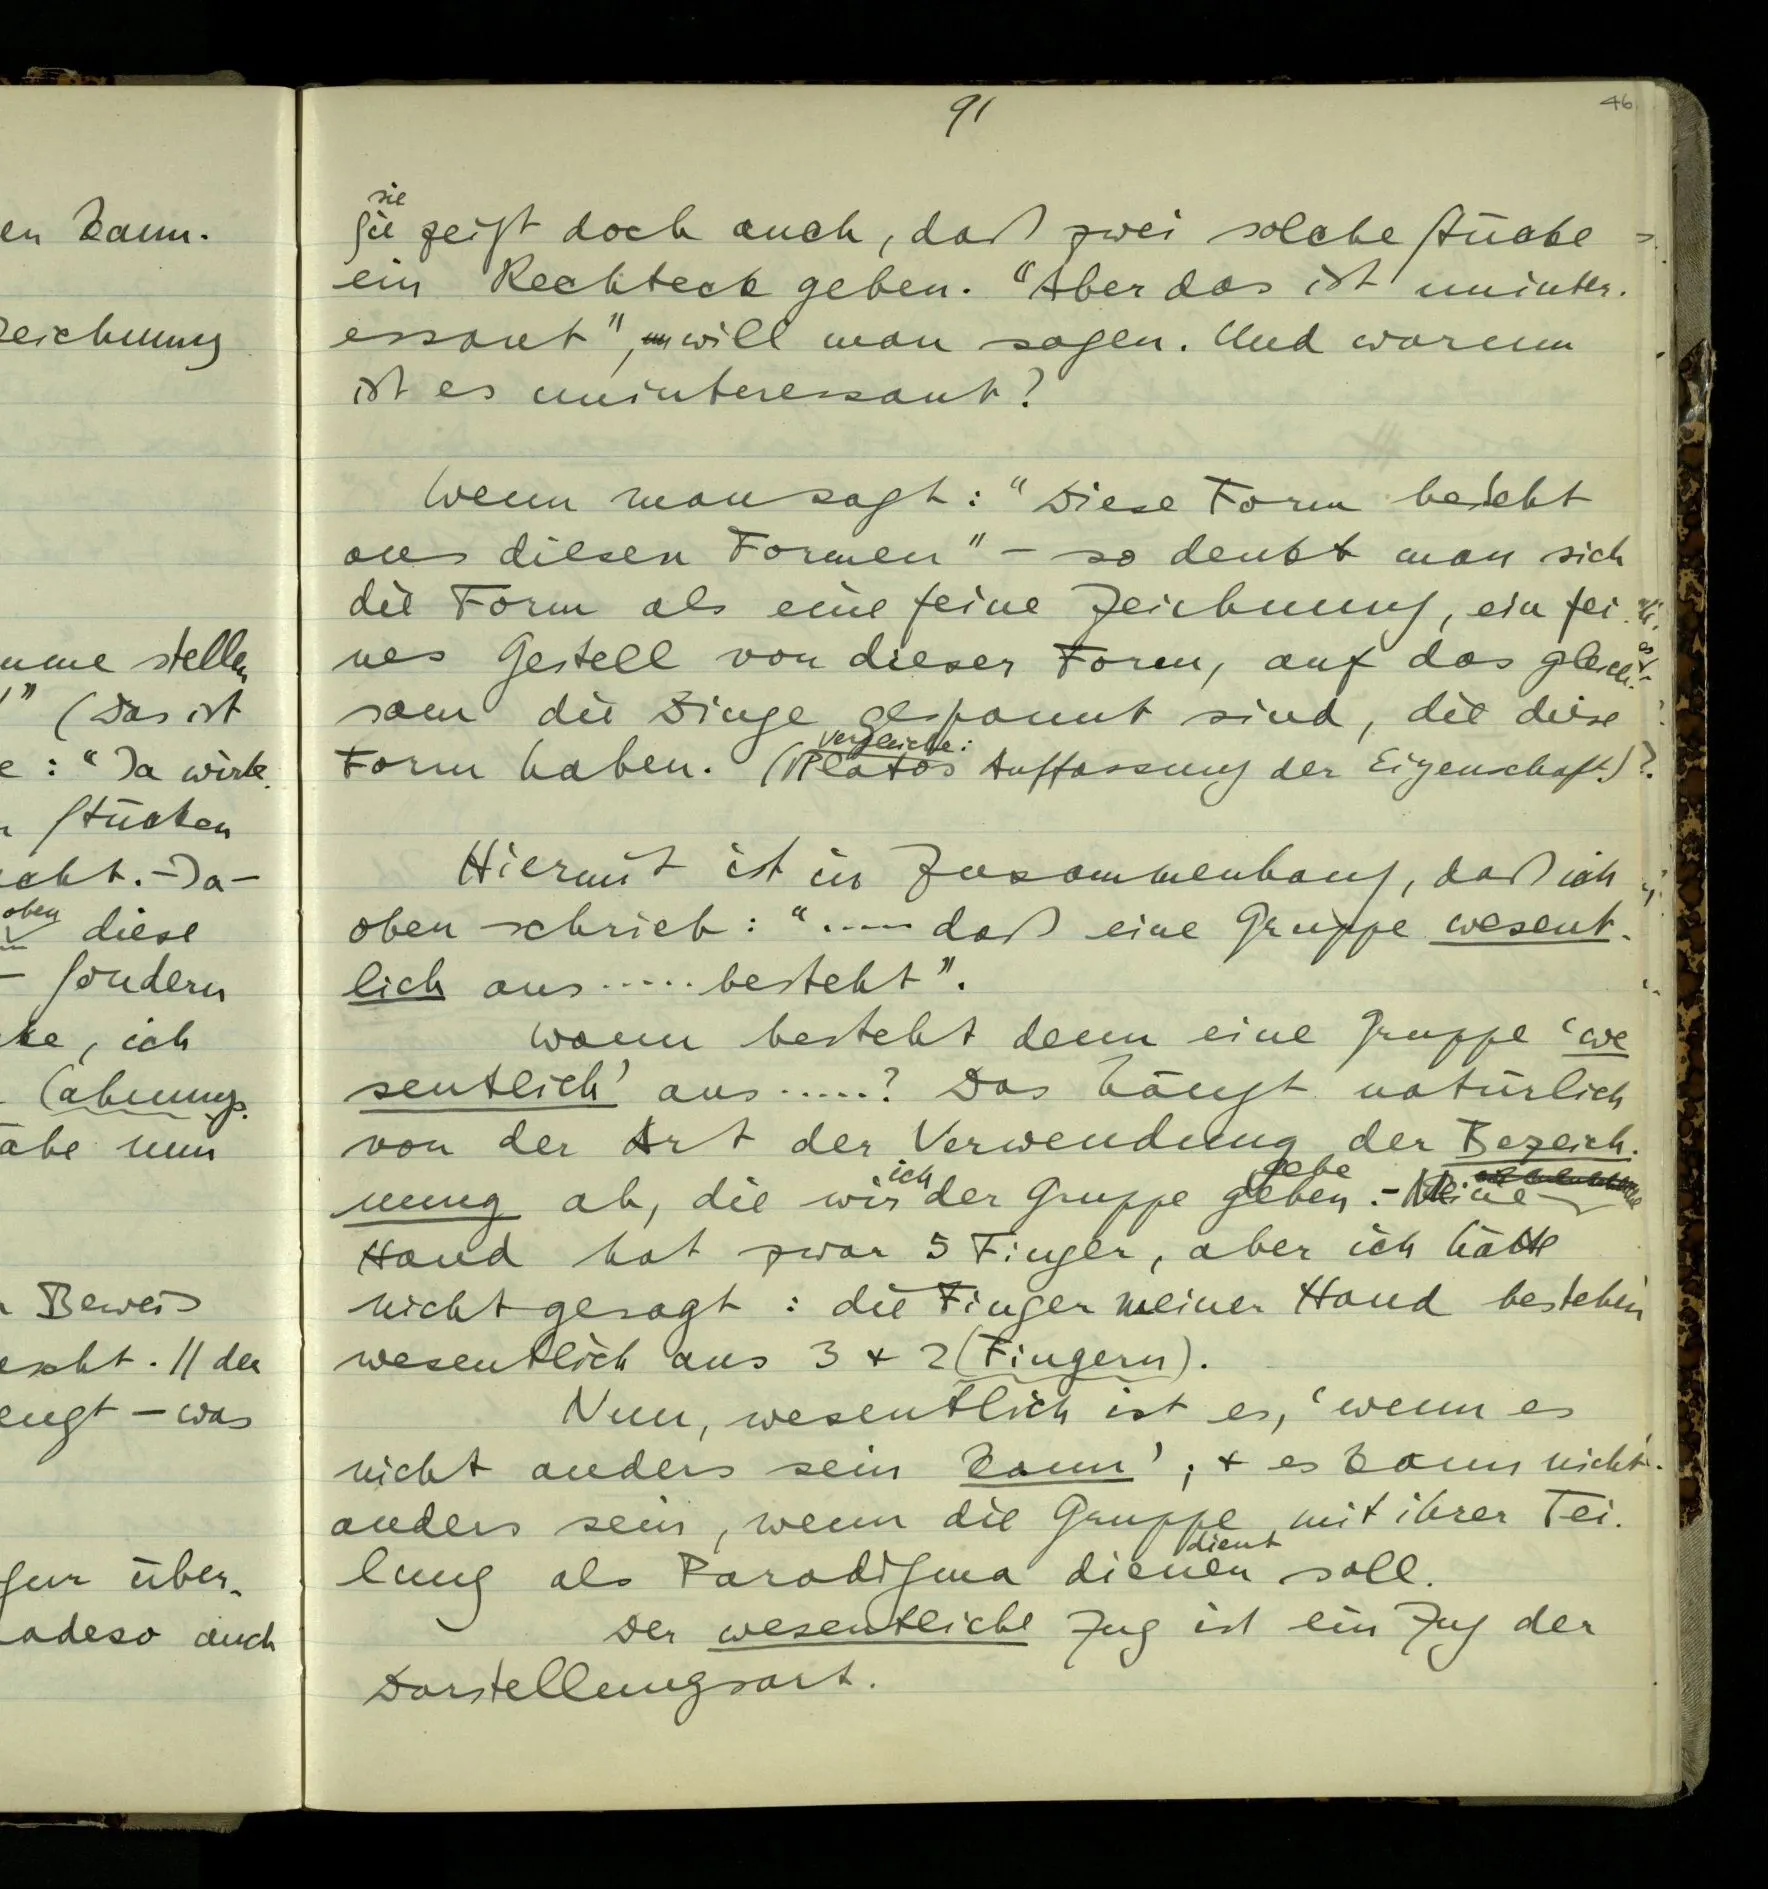 en kann.
zeichnung
stellen
" (Das ist
e : "Da wirk
Stücken
acht. - Da -
oben
diese
- sondern
ke, ich
(ahnungs.
abe nun
Beweis
. // der
engt – was
gur über-
adeso auch
91
46
sie
Sie zeigt doch auch, daß zwei solche Stücke
ein Rechteck geben. "Aber das ist uninter-
essant", will man sagen. Und warum
ist es uninteressant?
Wenn man sagt: "Diese Form besteht
aus diesen Formen" – so denkt man sich
die Form als eine feine Zeichnung, ein fei-
nes Gestell von dieser Form, auf das gleich-
sam die Dinge gespannt sind, die diese
vergleiche:
Form haben. (Platos Auffassung der Eigenschaft.)
Hiermit ist in Zusammenhang, daß ich
oben schrieb: "..... daß eine Gruppe wesent-
lich aus ..... besteht".
Wann besteht denn eine Gruppe 'we
sentlich' aus .....? Das hängt natürlich
von der Art der Verwendung der Bezeich-
ich gebe
nung ab, die wir der Gruppe geben. – Meine
Hand hat zwar 5 Finger, aber ich hätte
nicht gesagt: die Finger meiner Hand bestehen
wesentlich aus 3 + 2 (Fingern).
Nun, wesentlich ist es, 'wenn es
nicht anders sein kann'; + es kann nicht
anders sein, wenn die Gruppe mit ihrer Tei-
dient
lung als Paradigma dienen soll.
Der wesentliche Zug ist ein Zug der
Darstellungsart.